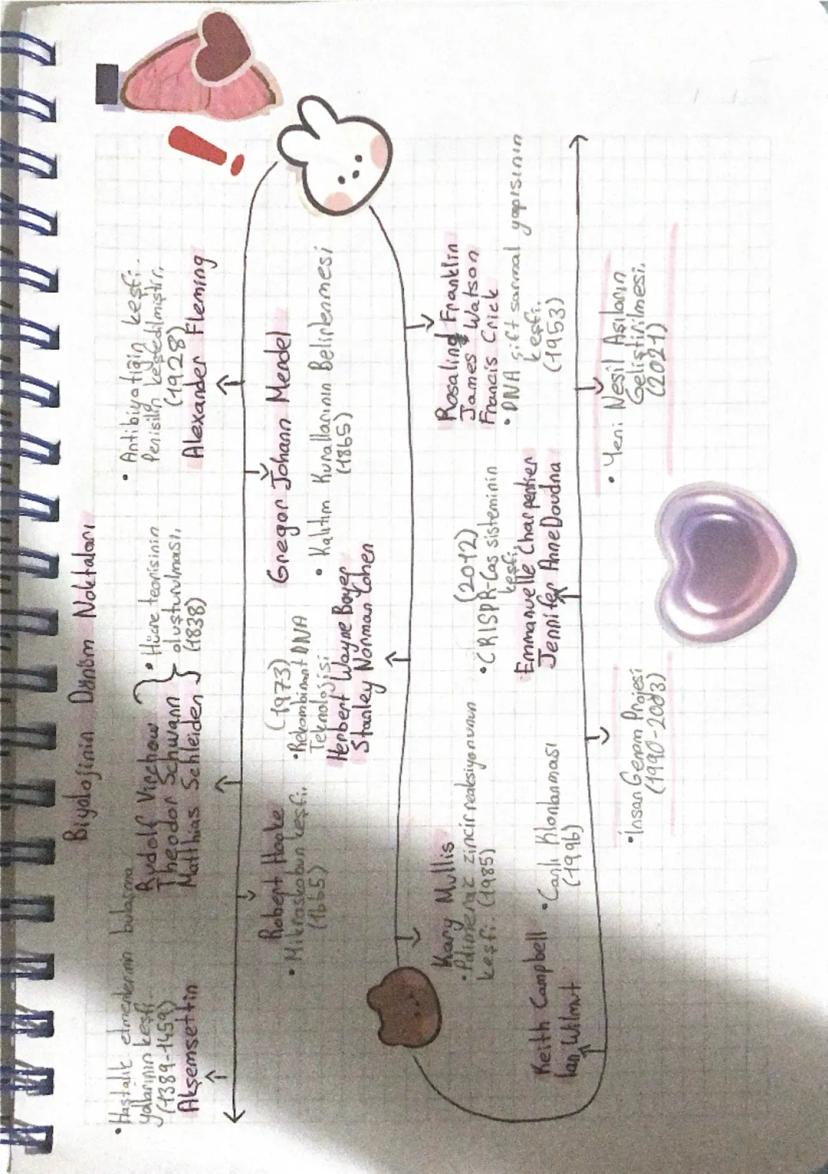 Biyolojinin Dönüm Noktaları
• Hastalık etmenlerinin bulaşma
yollarının keşfi
(1389-1459)
Akşemsettin
Robert Hooke
• Mikroskobun keşfi.
(1665)
Rudolf Virchow
Theodor Schwann
Matthias Schleiden
• Hücre teorisinin
oluşturulması.
(1838)
Gregor Johann Mendel
• Kalıtım Kurallarının Belirlenmesi
(1865)
• Antibiyotiğin keşfi.
Penisilin keşfedilmiştir.
(1928)
Alexander Fleming
Rosalind Franklin
James Watson
Francis Crick
• DNA çift sarmal yapısının
keşfi.
(1953)
(1973)
• Rekombinant DNA
Teknolojisi
Herbert Wayne Boyer
Stanley Norman Cohen
Kary Mullis
• Polimeraz zincir reaksiyonunun
keşfi. (1985)
Keith Campbell
Ian Wilmut
• Canlı Klonlanması
(1996)
• İnsan Genom Projesi
(1990-2003)
(2012)
• CRISPR-Cas sisteminin
keşfi.
Emmanuelle Charpentier
Jennifer Anne Doudna
• Yeni Nesil Aşıların
Geliştirilmesi.
(2021)